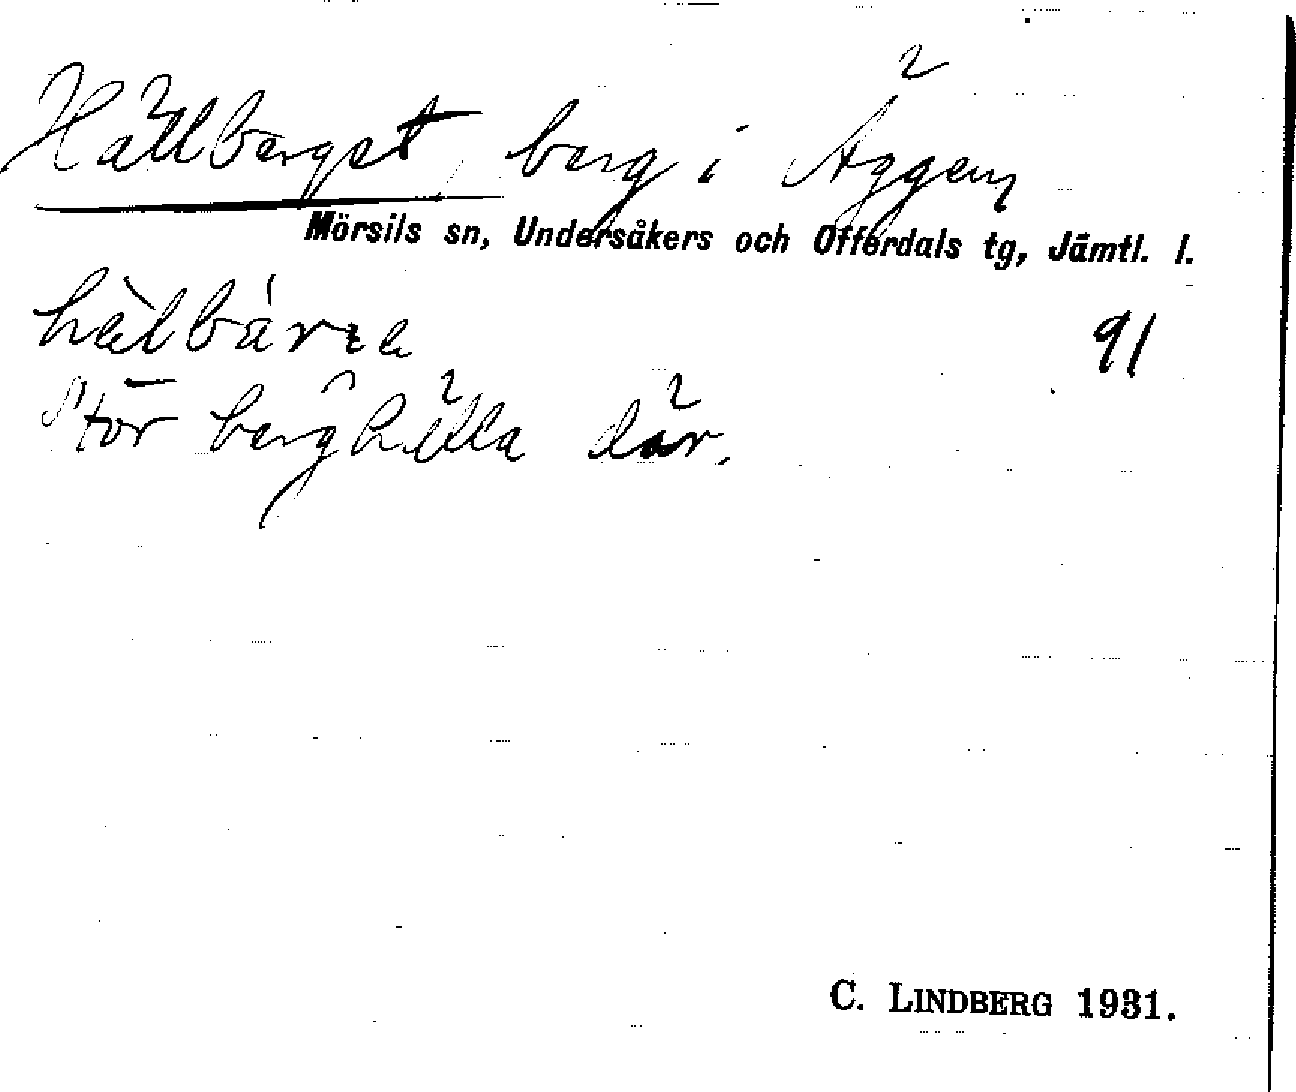 Hällberget, berg i Äggen
Mörsils sn, Undersåkers och Offerdals tg, Jämtl. l.
91
Stor berghälla där.
C. LINDBERG 1931.